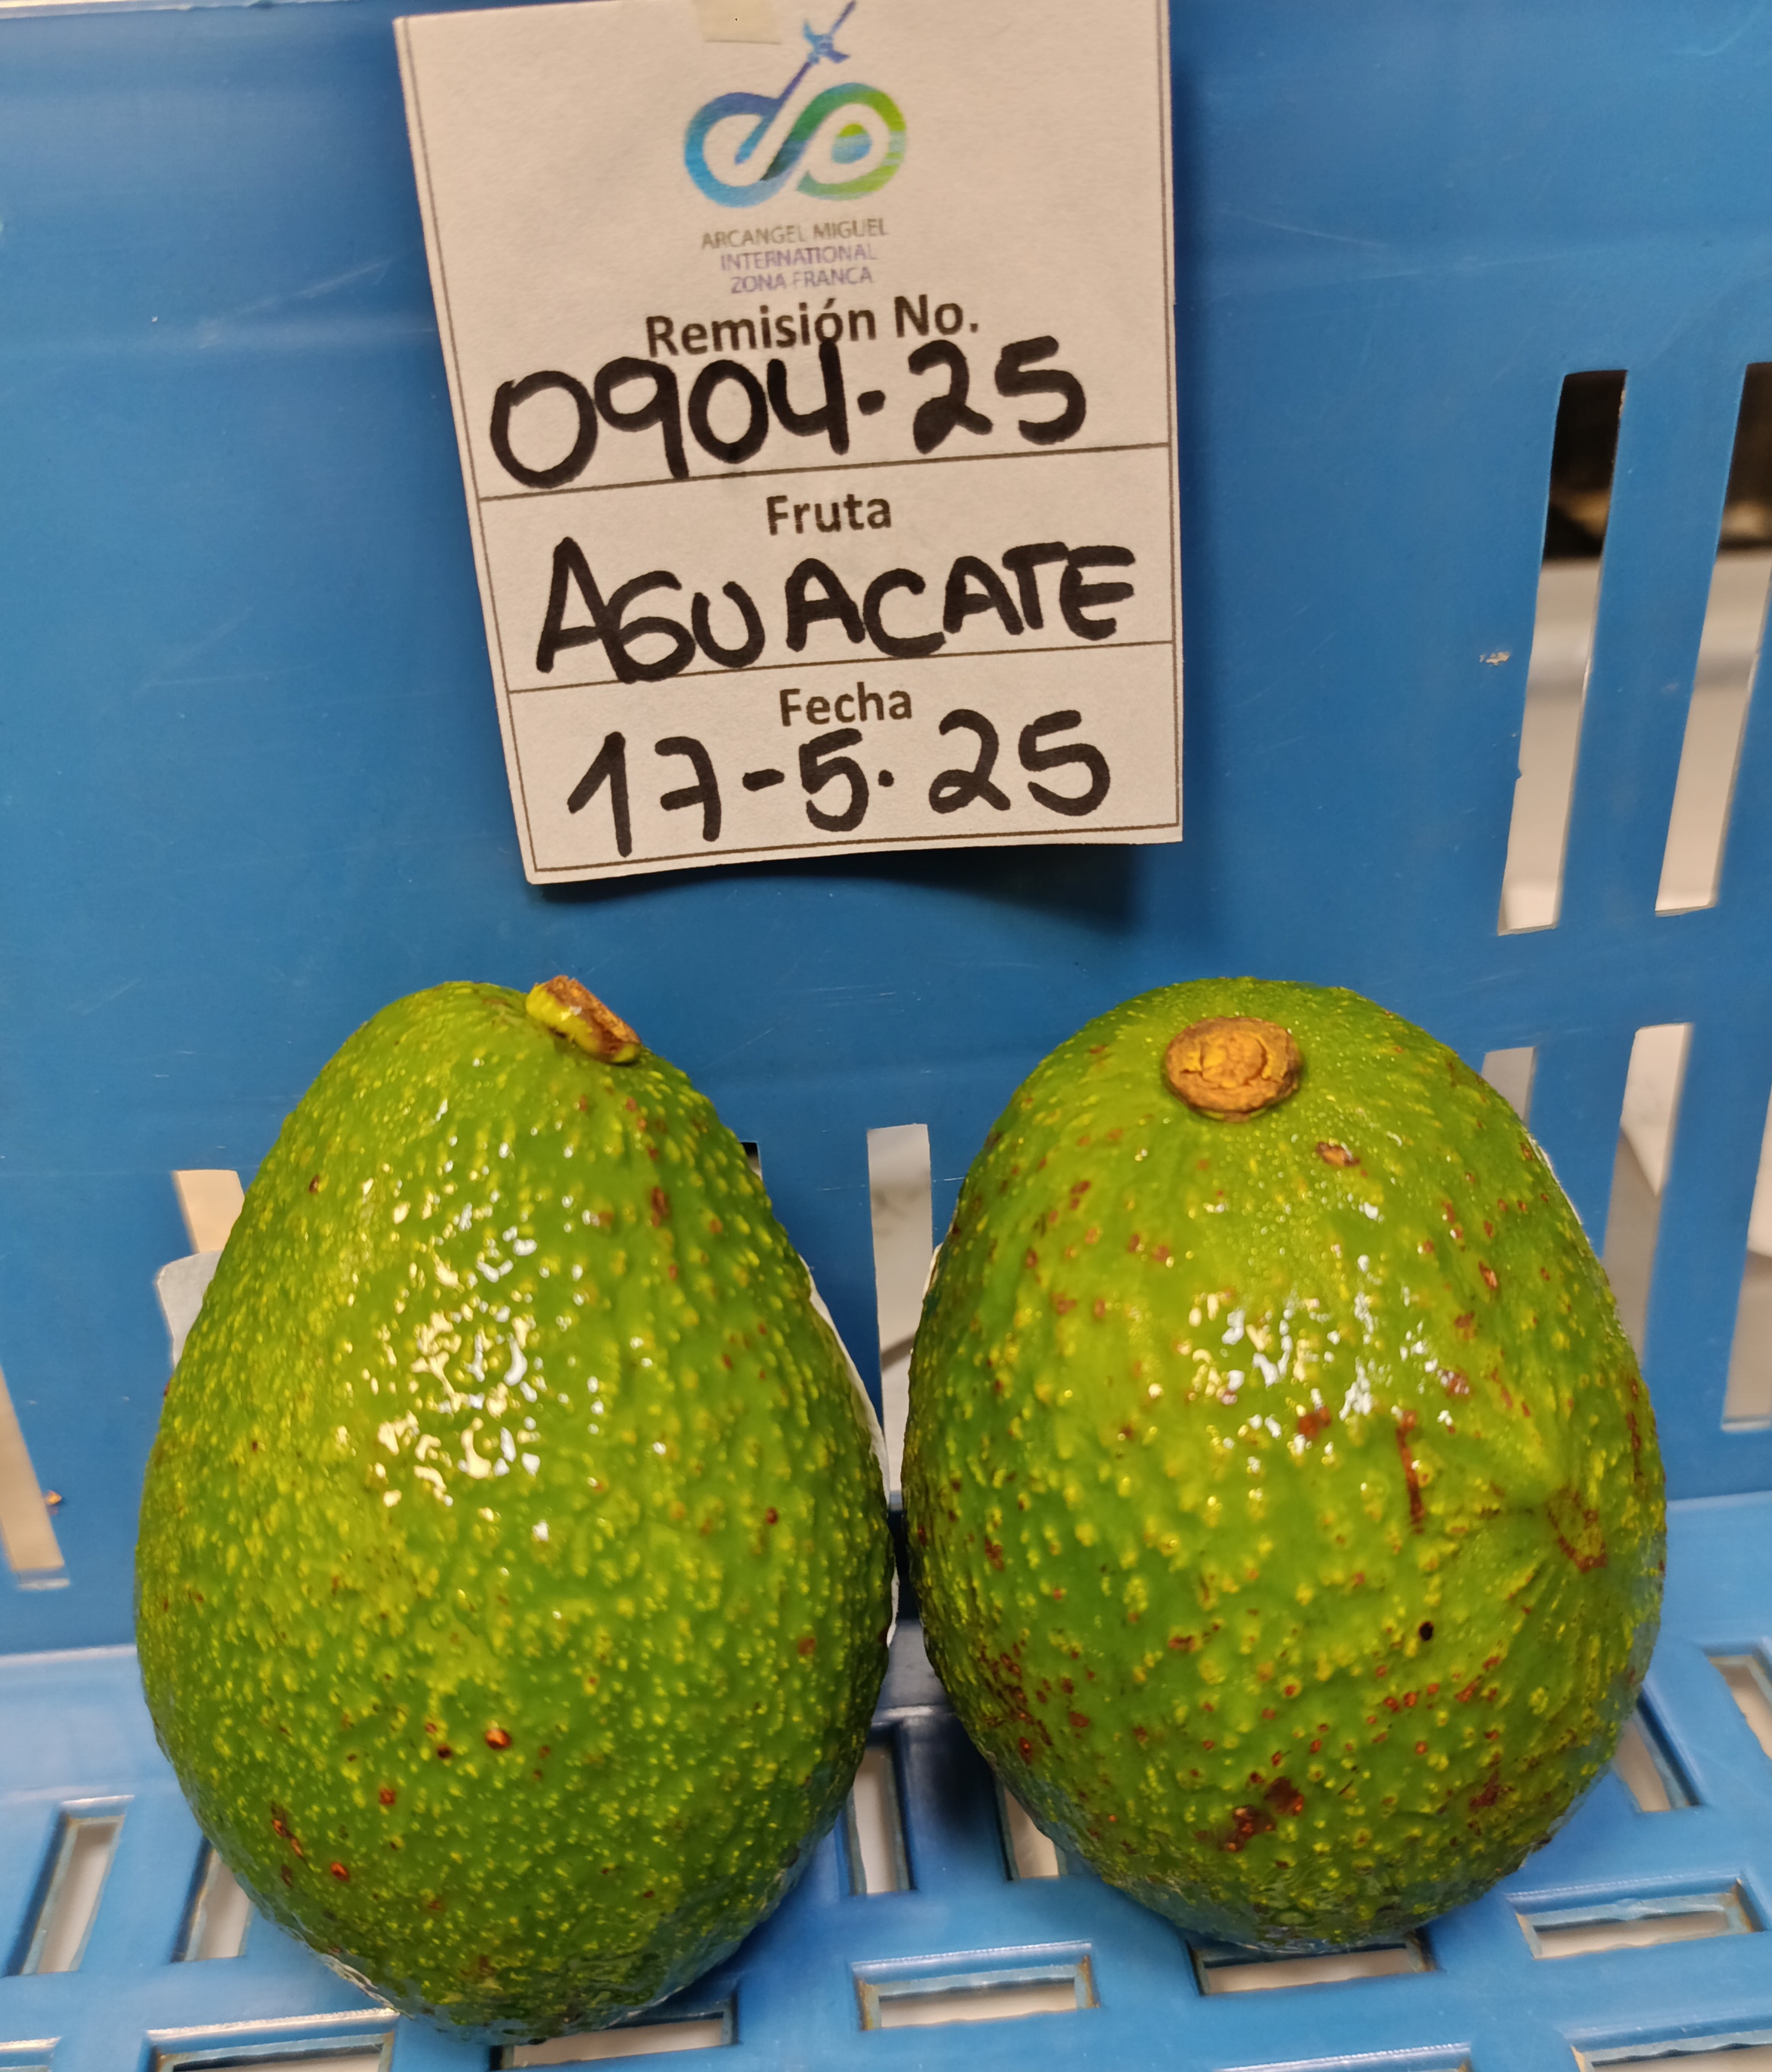 ARCANGEL MIGUEL
INTERNATIONAL
ZONA FRANCA
Remisión No.
0904-25
Fruta
AGUACATE
Fecha
17-5-25